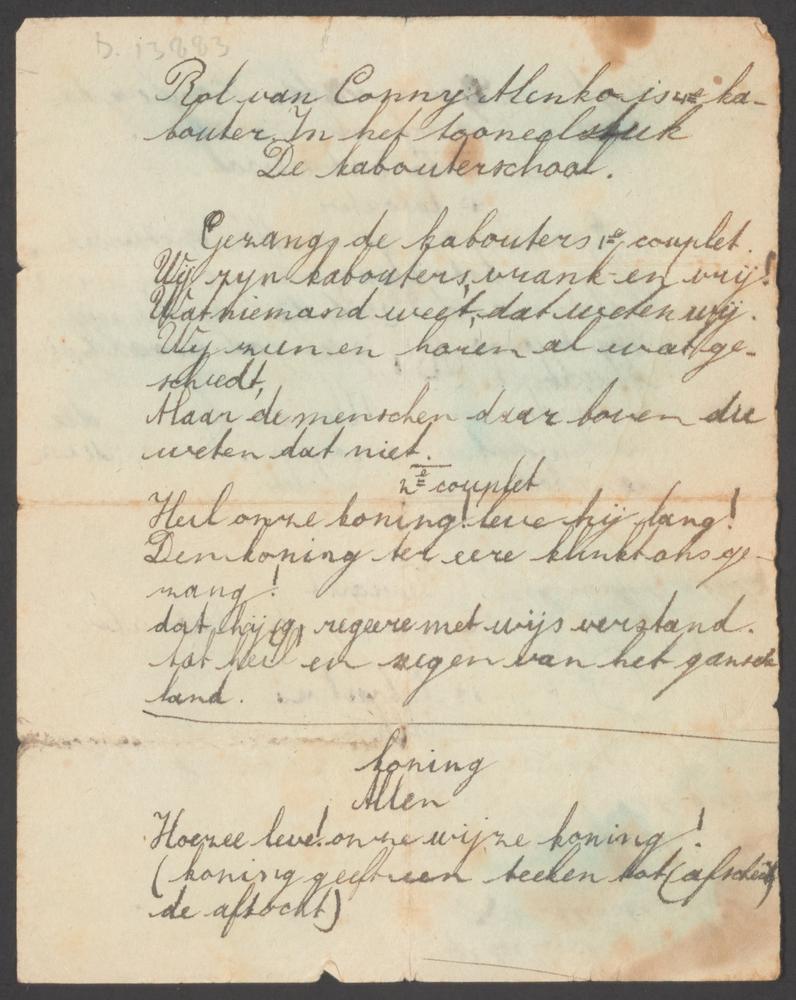 D. 13883
Rol van Conny Menko is 4e ka-
bouter. In het tooneelstuk
De kabouterschool.
Gezang, de kabouters 1e couplet.
Wij zijn kabouters, vrank en vrij!
Wat niemand weet, dat weten wij.
Wij zien en horen al wat ge-
schiedt,
Maar de menschen daar boven die
weten dat niet.
2e couplet
Heil onze koning! leve hij lang!
Den koning ter eere klinkt ons ge-
zang!
dat hij regeere met wijs verstand.
tot heil en zegen van het gansch
land.
koning
Allen
Hoezee leve! onze wijze koning!
(koning geeft een teeken tot (afscheid)
de aftocht)